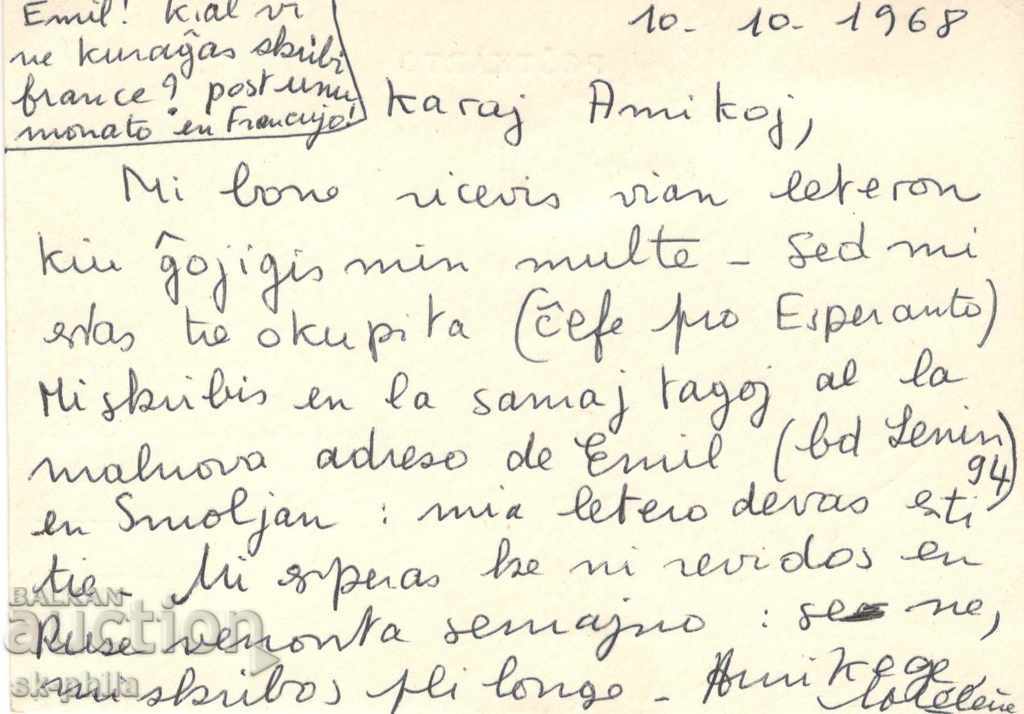 Emil! Kial vi
ne kuraĝas skribi
france? post unu
monato en Francujo!
10-10-1968
Karaj Amikoj,
Mi bone ricevis vian leteron
kiu ĝojigis min multe - Sed mi
estas tre okupita (ĉefe pro Esperanto)
Mi skribis en la samaj tagoj al la
malnova adreso de Emil (bd Lenin
94)
en Smoljan : mia letero devas esti
tie - Mi esperas ke ni revidos en
Ruse venonta semajno : se ne,
mi skribos pli longe - Amikege
BALKAN
auction
sk-phila